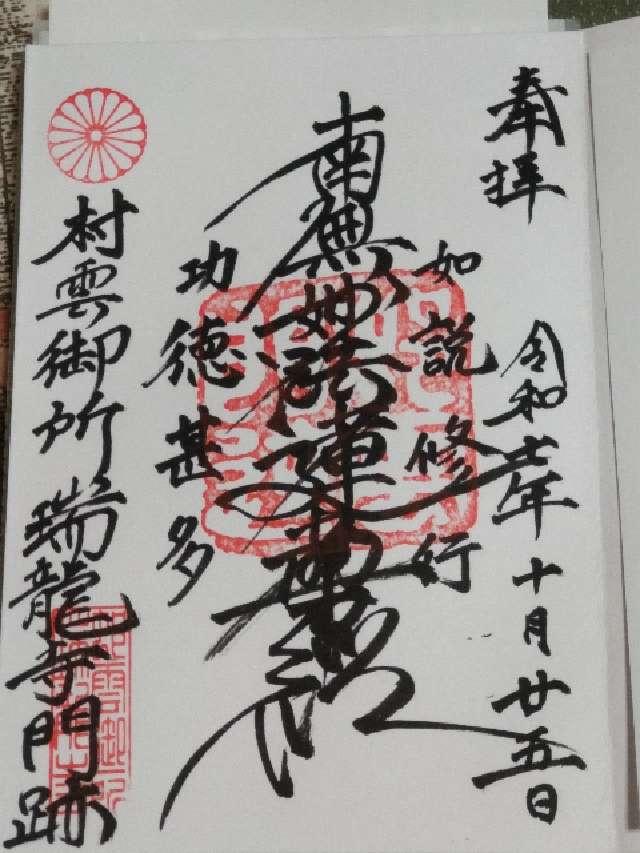 奉拝
令和七年十月廿五日
如説修行
南無妙法蓮華経
功徳甚多
村雲御所瑞龍寺門跡